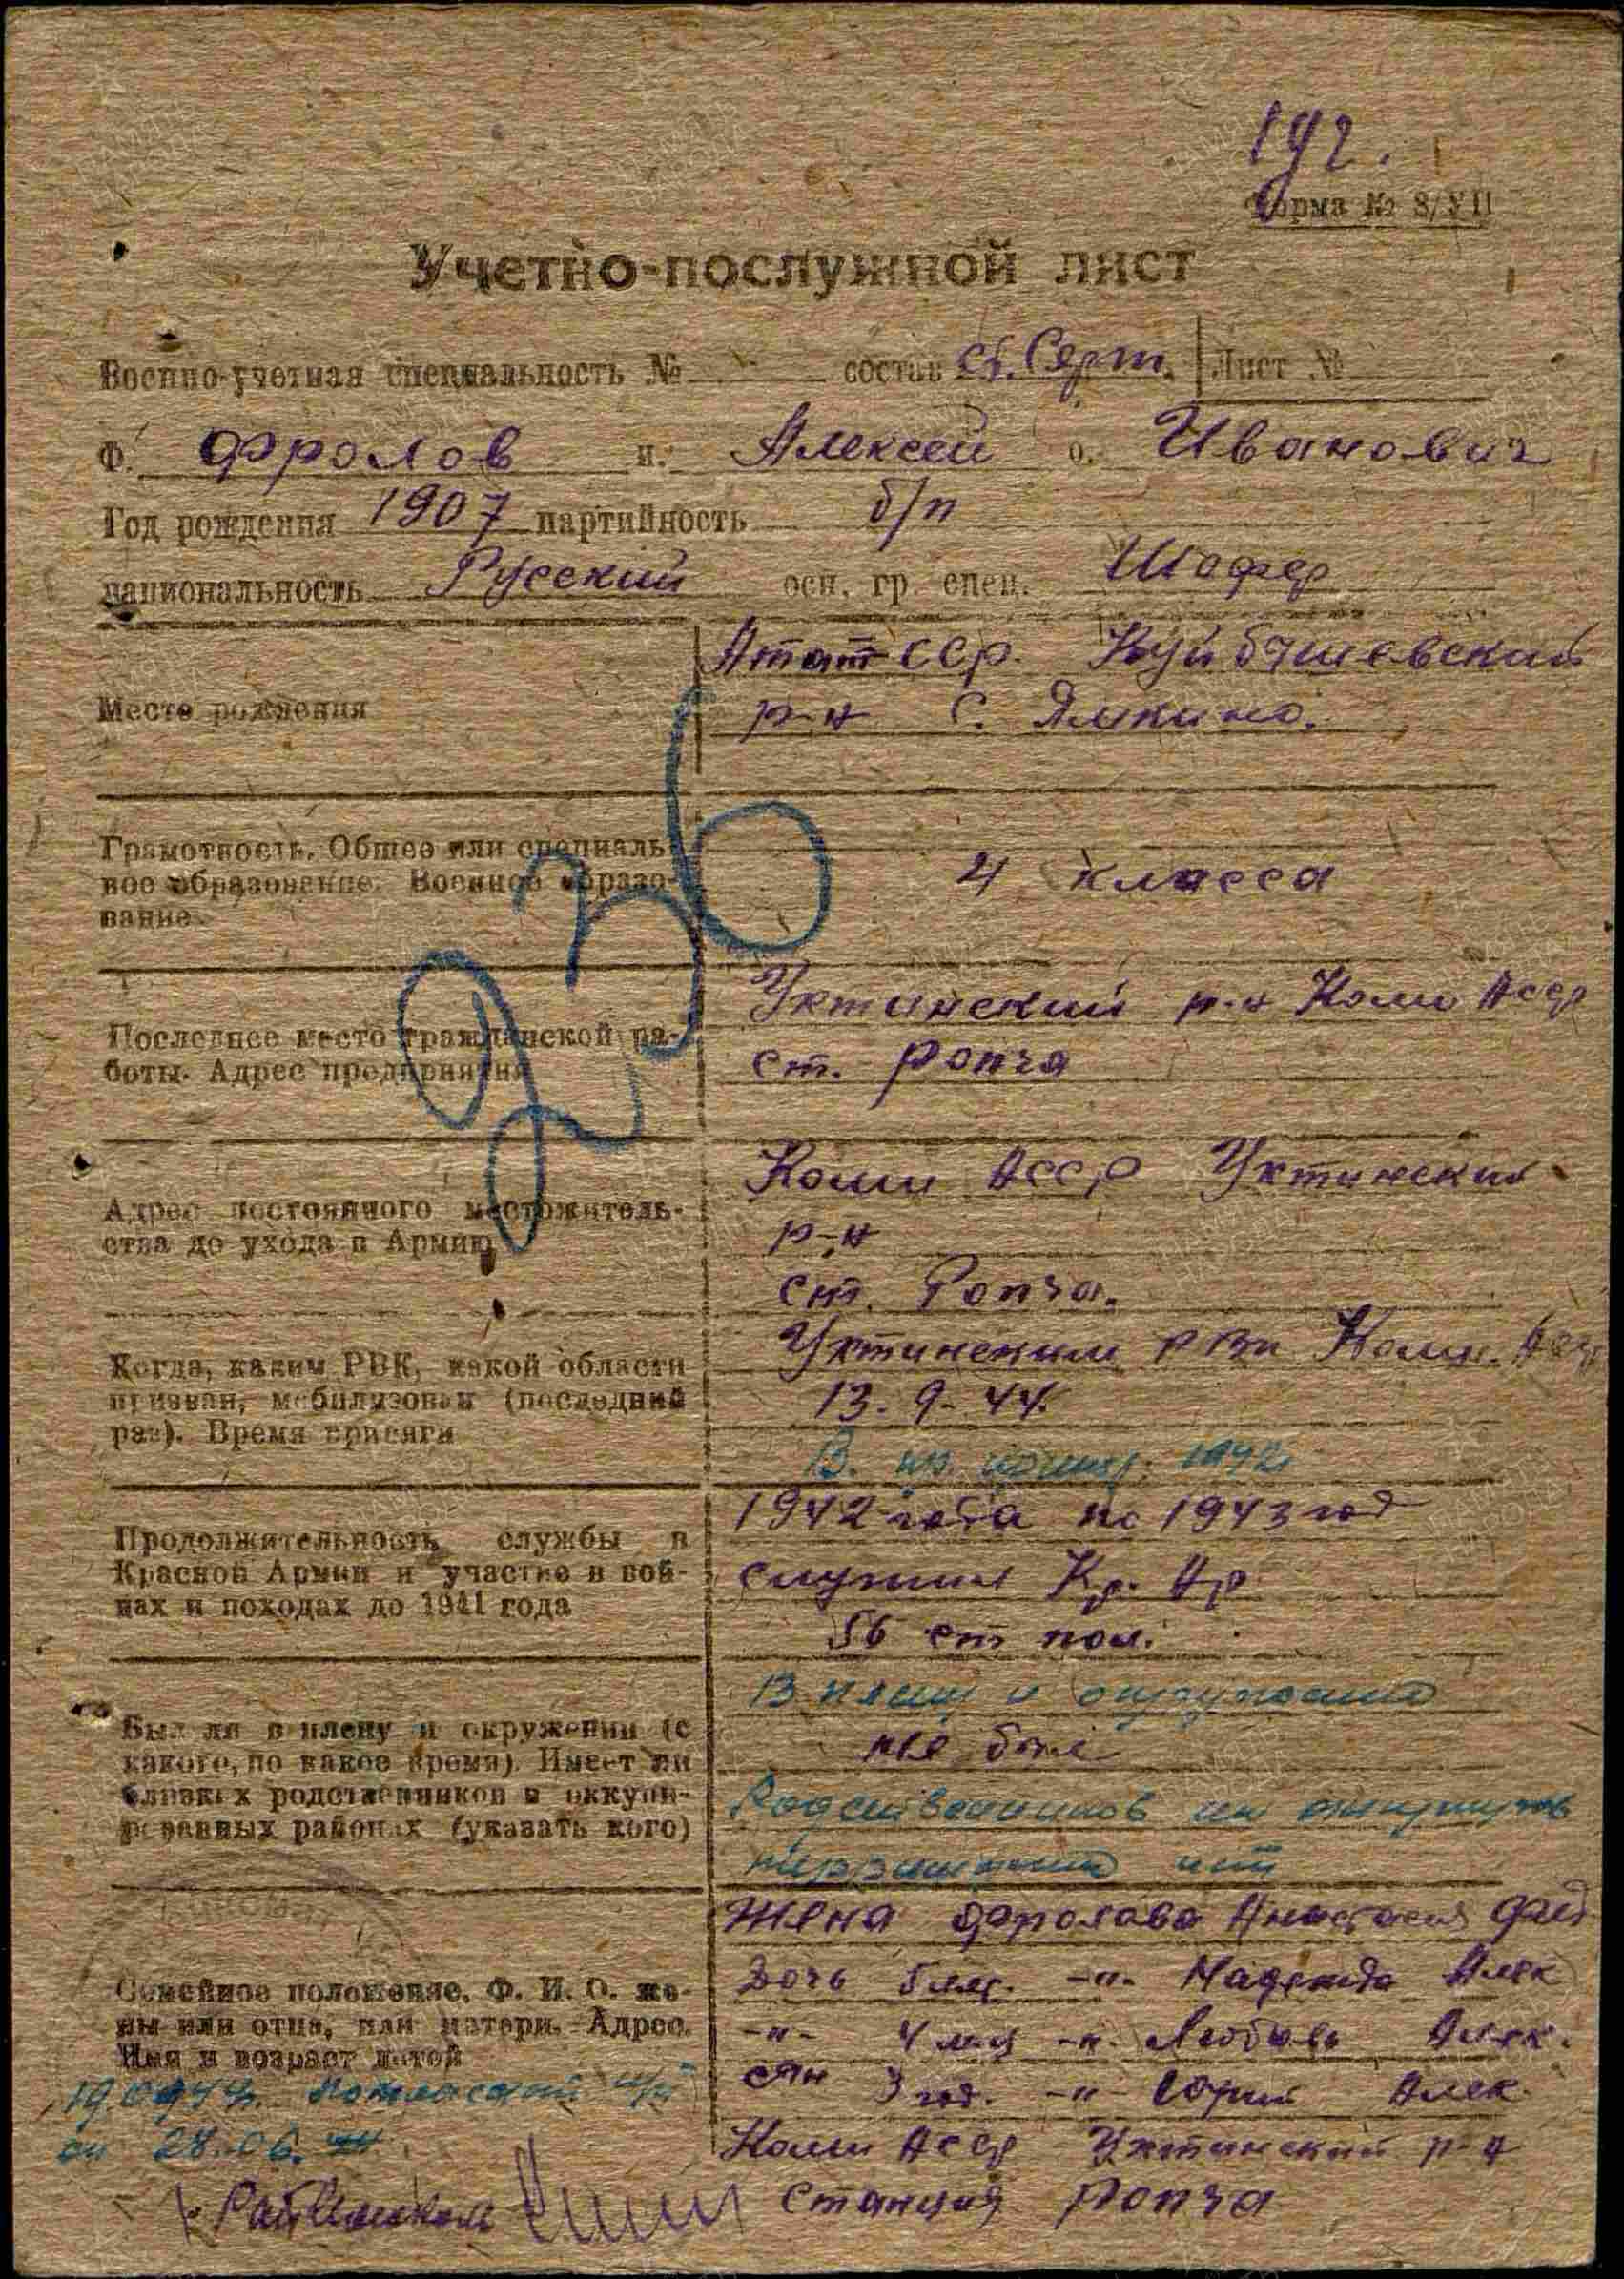 192.
Форма № 8/VII
Учетно-послужной лист
Военно-учетная специальность № состав Ст. Серт. Лист №
Ф. Фролов и. Алексей о. Иванович
Год рождения 1907 партийность б/п
национальность Русский осн. гр. спец. Шофер
Место рождения
Атат ССР. Куйбышевский
р-н с. Ямкино.
Грамотность. Общее или специаль-
ное образование. Военное образо-
вание.
4 класса
236
Последнее место гражданской ра-
боты. Адрес предприятия
Ухтинский р-н Коми АССР
ст. Ропча
Адрес постоянного местожитель-
ства до ухода в Армию
Коми АССР Ухтинский
р-н
ст. Ропча.
Когда, каким РВК, какой области
призван, мобилизован (последний
раз). Время присяги
Ухтинским РВК Коми АССР
13.9-44.
В. 1942
Продолжительность службы в
Красной Армии и участие в вой-
нах и походах до 1941 года
1942 года по 1943 год
служил Кр. Ар
56 ст пол.
Был ли в плену и окружении (с
какого, по какое время). Имеет ли
близких родственников в оккупи-
рованных районах (указать кого)
В плену и окружении
не был
Родственников на
нет
Семейное положение. Ф. И. О. же-
ны или отца, или матери. Адрес.
Имя и возраст детей
Жена Фролова Анастасия
Дочь 5 -"- Надежда Алек
-"- 4 -"- Любовь Алек.
сын 3 год. -"- Юрий Алек.
Коми АССР Ухтинский р-н
Станция Ропча
28.06.44
Райвоенком